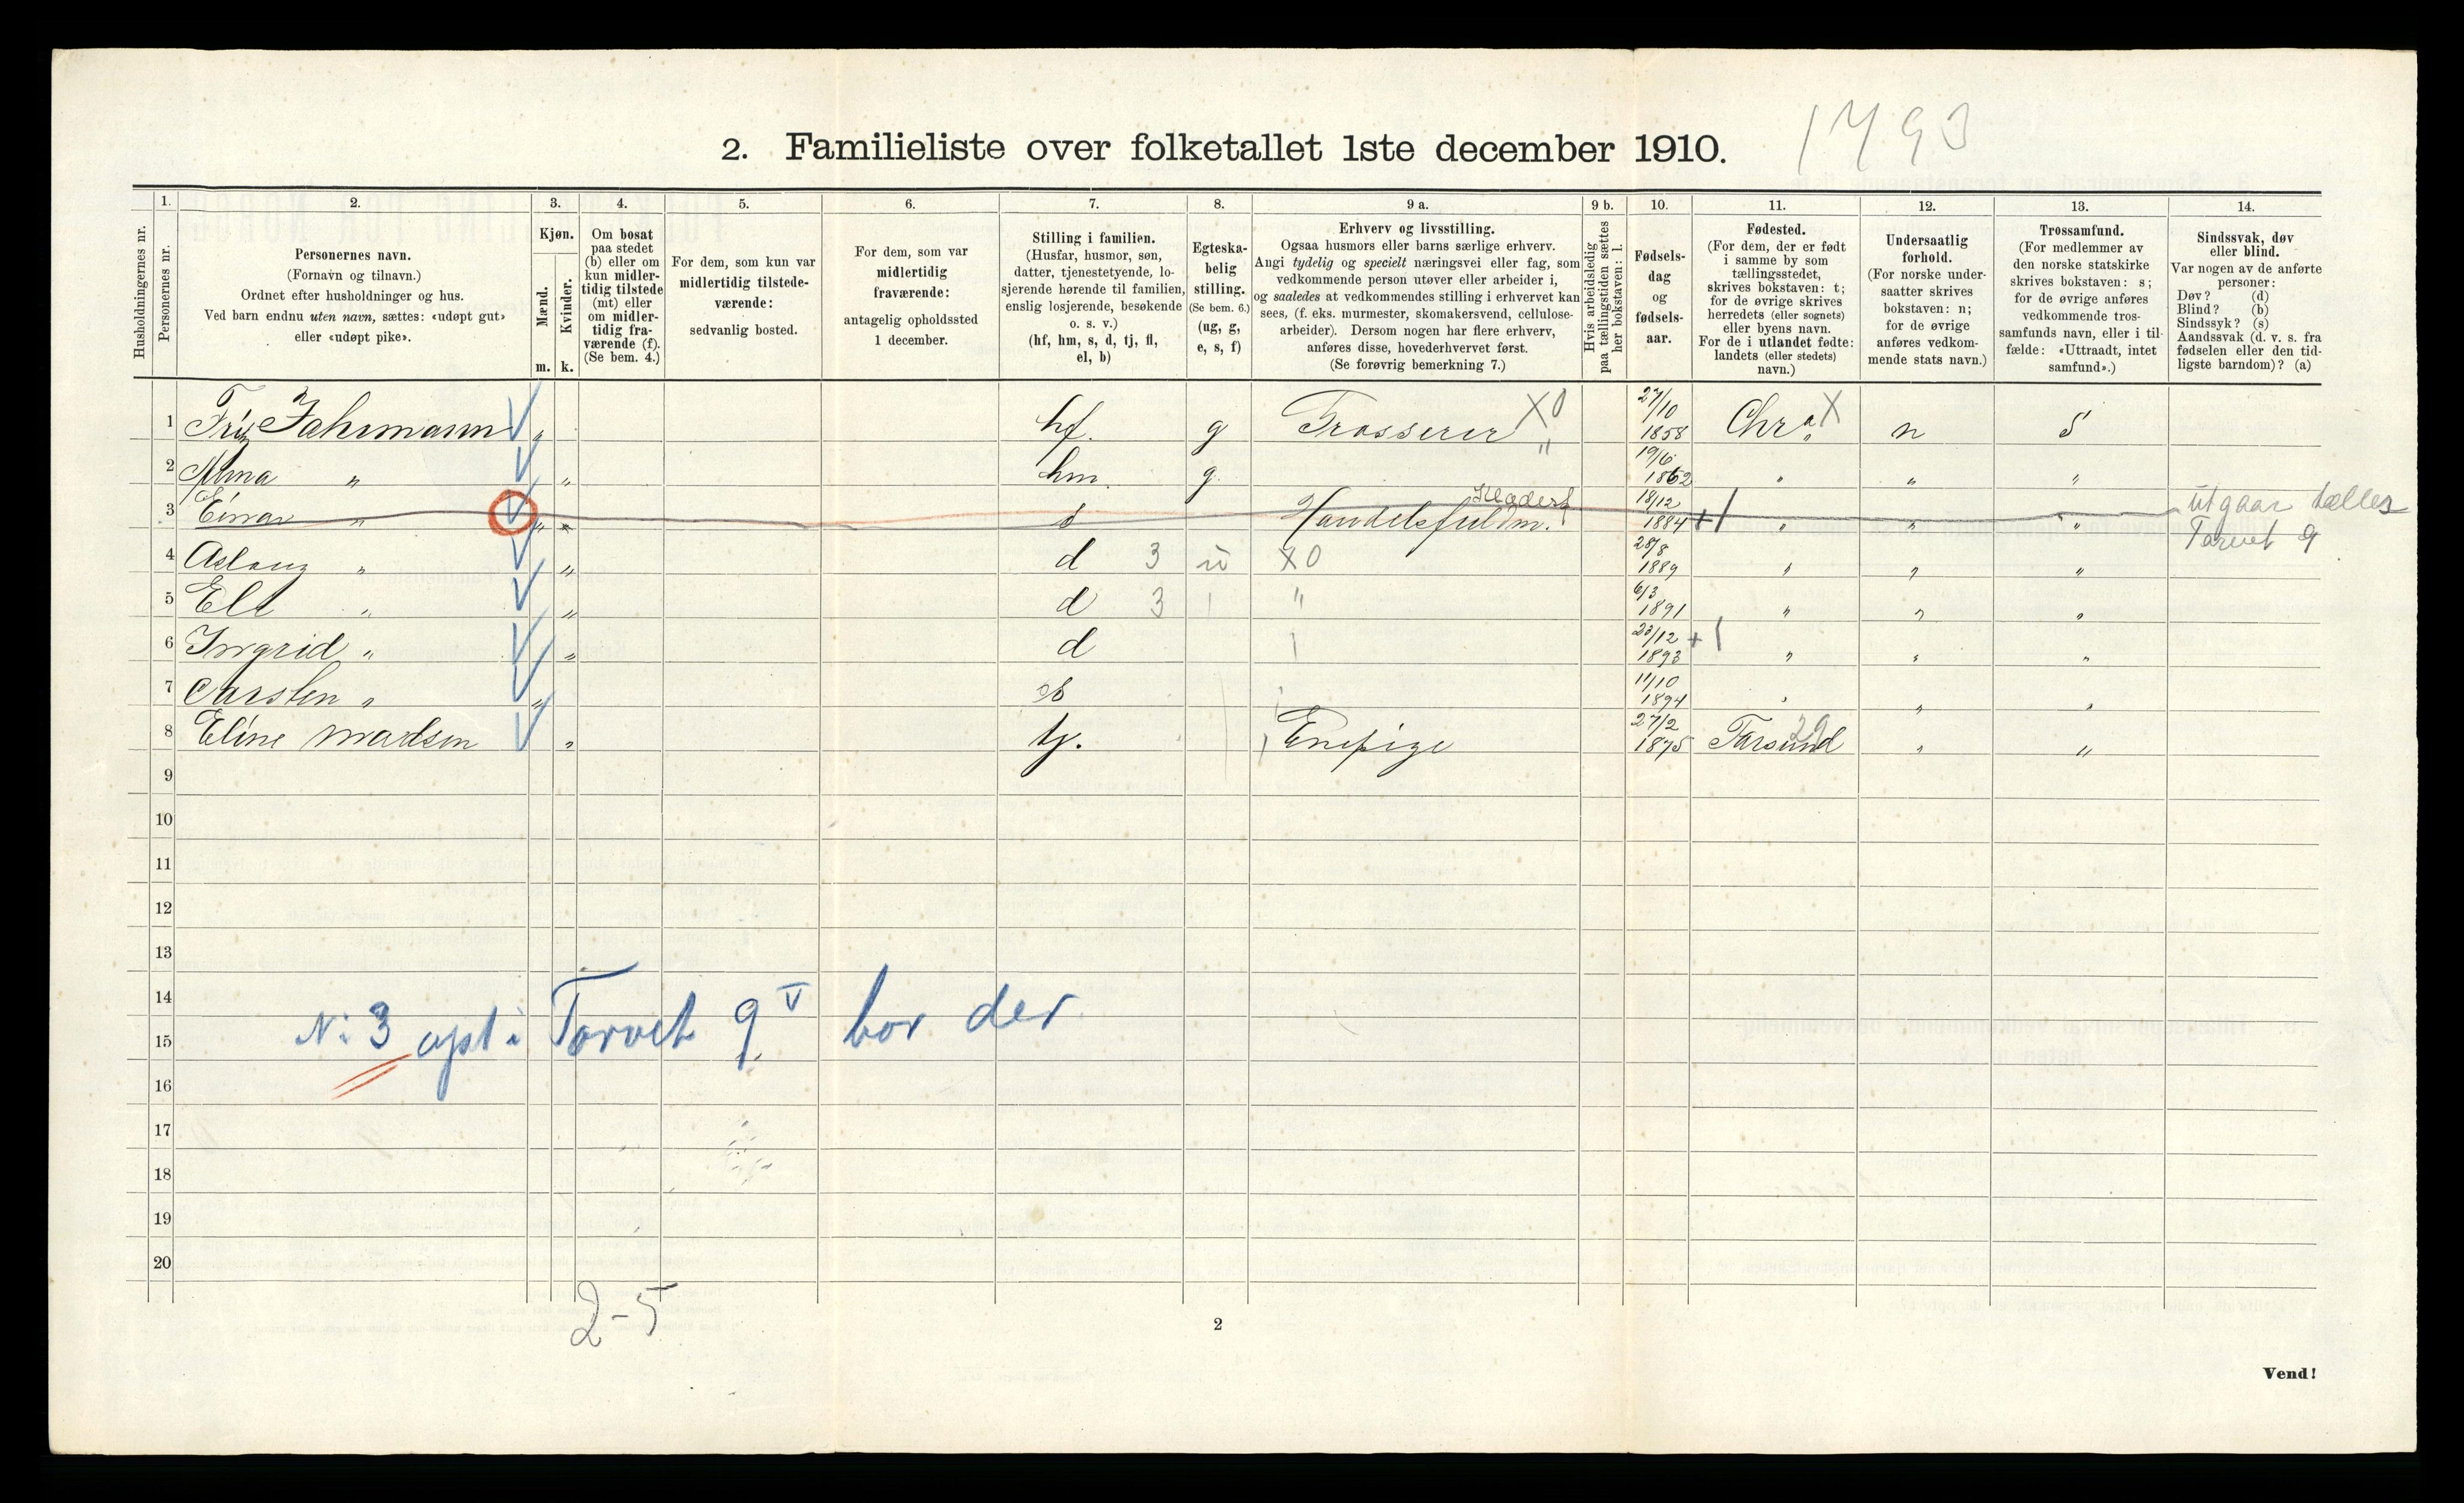 1793
2. Familieliste over folketallet 1ste december 1910.
Husholdningernes nr.
1.
Personernes nr.
2.
Personernes navn.
(Fornavn og tilnavn.)
Ordnet efter husholdninger og hus.
Ved barn endnu uten navn, sættes: «udøpt gut»
eller «udøpt pike».
3.
Kjøn.
Mænd.
Kvinder.
m. k.
4.
Om bosat
paa stedet
(b) eller om
kun midler-
tidig tilstede
(mt) eller
om midler-
tidig fra-
værende (f).
(Se bem. 4.)
5.
For dem, som kun var
midlertidig tilstede-
værende:
sedvanlig bosted.
6.
For dem, som var
midlertidig
fraværende:
antagelig opholdssted
1 december.
7.
Stilling i familien.
(Husfar, husmor, søn,
datter, tjenestetyende, lo-
sjerende hørende til familien,
enslig losjerende, besøkende
o. s. v.)
(hf, hm, s, d, tj, fl,
el, b)
8.
Egteska-
belig
stilling.
(Se bem. 6.)
(ug, g,
e, s, f)
9 a.
Erhverv og livsstilling.
Ogsaa husmors eller barns særlige erhverv.
Angi tydelig og specielt næringsvei eller fag, som
vedkommende person utøver eller arbeider i,
og saaledes at vedkommendes stilling i erhvervet kan
sees, (f. eks. murmester, skomakersvend, cellulose-
arbeider). Dersom nogen har flere erhverv,
anføres disse, hovederhvervet først.
(Se forøvrig bemerkning 7.)
9 b.
Hvis arbeidsledig
paa tællingstiden sættes
her bokstaven: l.
10.
Fødsels-
dag
og
fødsels-
aar.
11.
Fødested.
(For dem, der er født
i samme by som
tællingsstedet,
skrives bokstaven: t;
for de øvrige skrives
herredets (eller sognets)
eller byens navn.
For de i utlandet fødte:
landets (eller stedets)
navn.)
12.
Undersaatlig
forhold.
(For norske under-
saatter skrives
bokstaven: n;
for de øvrige
anføres vedkom-
mende stats navn.)
13.
Trossamfund.
(For medlemmer av
den norske statskirke
skrives bokstaven: s;
for de øvrige anføres
vedkommende tros-
samfunds navn, eller i til-
fælde: «Uttraadt, intet
samfund».)
14.
Sindssvak, døv
eller blind.
Var nogen av de anførte
personer:
Døv? (d)
Blind? (b)
Sindssyk? (s)
Aandssvak (d. v. s. fra
fødselen eller den tid-
ligste barndom)? (a)
1 Fritz Jahrmann „ hf. g Grosserer X0 27/10 1858 Chra X n s
2 Alma „ „ hm. g „ 19/6 1862 „ „ „
3 Einar „ „ s Handelsfuldm. 18/12 1884 +1 „ „ „ utgaar tælles Torvet 9
4 Aslaug „ „ d 3 X0 28/8 1889 „ „ „
5 „ „ d 3 „ 6/3 1891 „ „ „
6 Ingrid „ „ d 23/12 1893 +1 „ „ „
7 Carsten „ „ s 11/10 1894 „ „ „
8 Eline Madsen „ tj. Enepige 27/2 1875 Farsund 29 „ „
9
10
11
12
13
14
15
16
17
18
19
20
N: 3 opt i Torvet 9 V bor der
2-5
2
Vend!